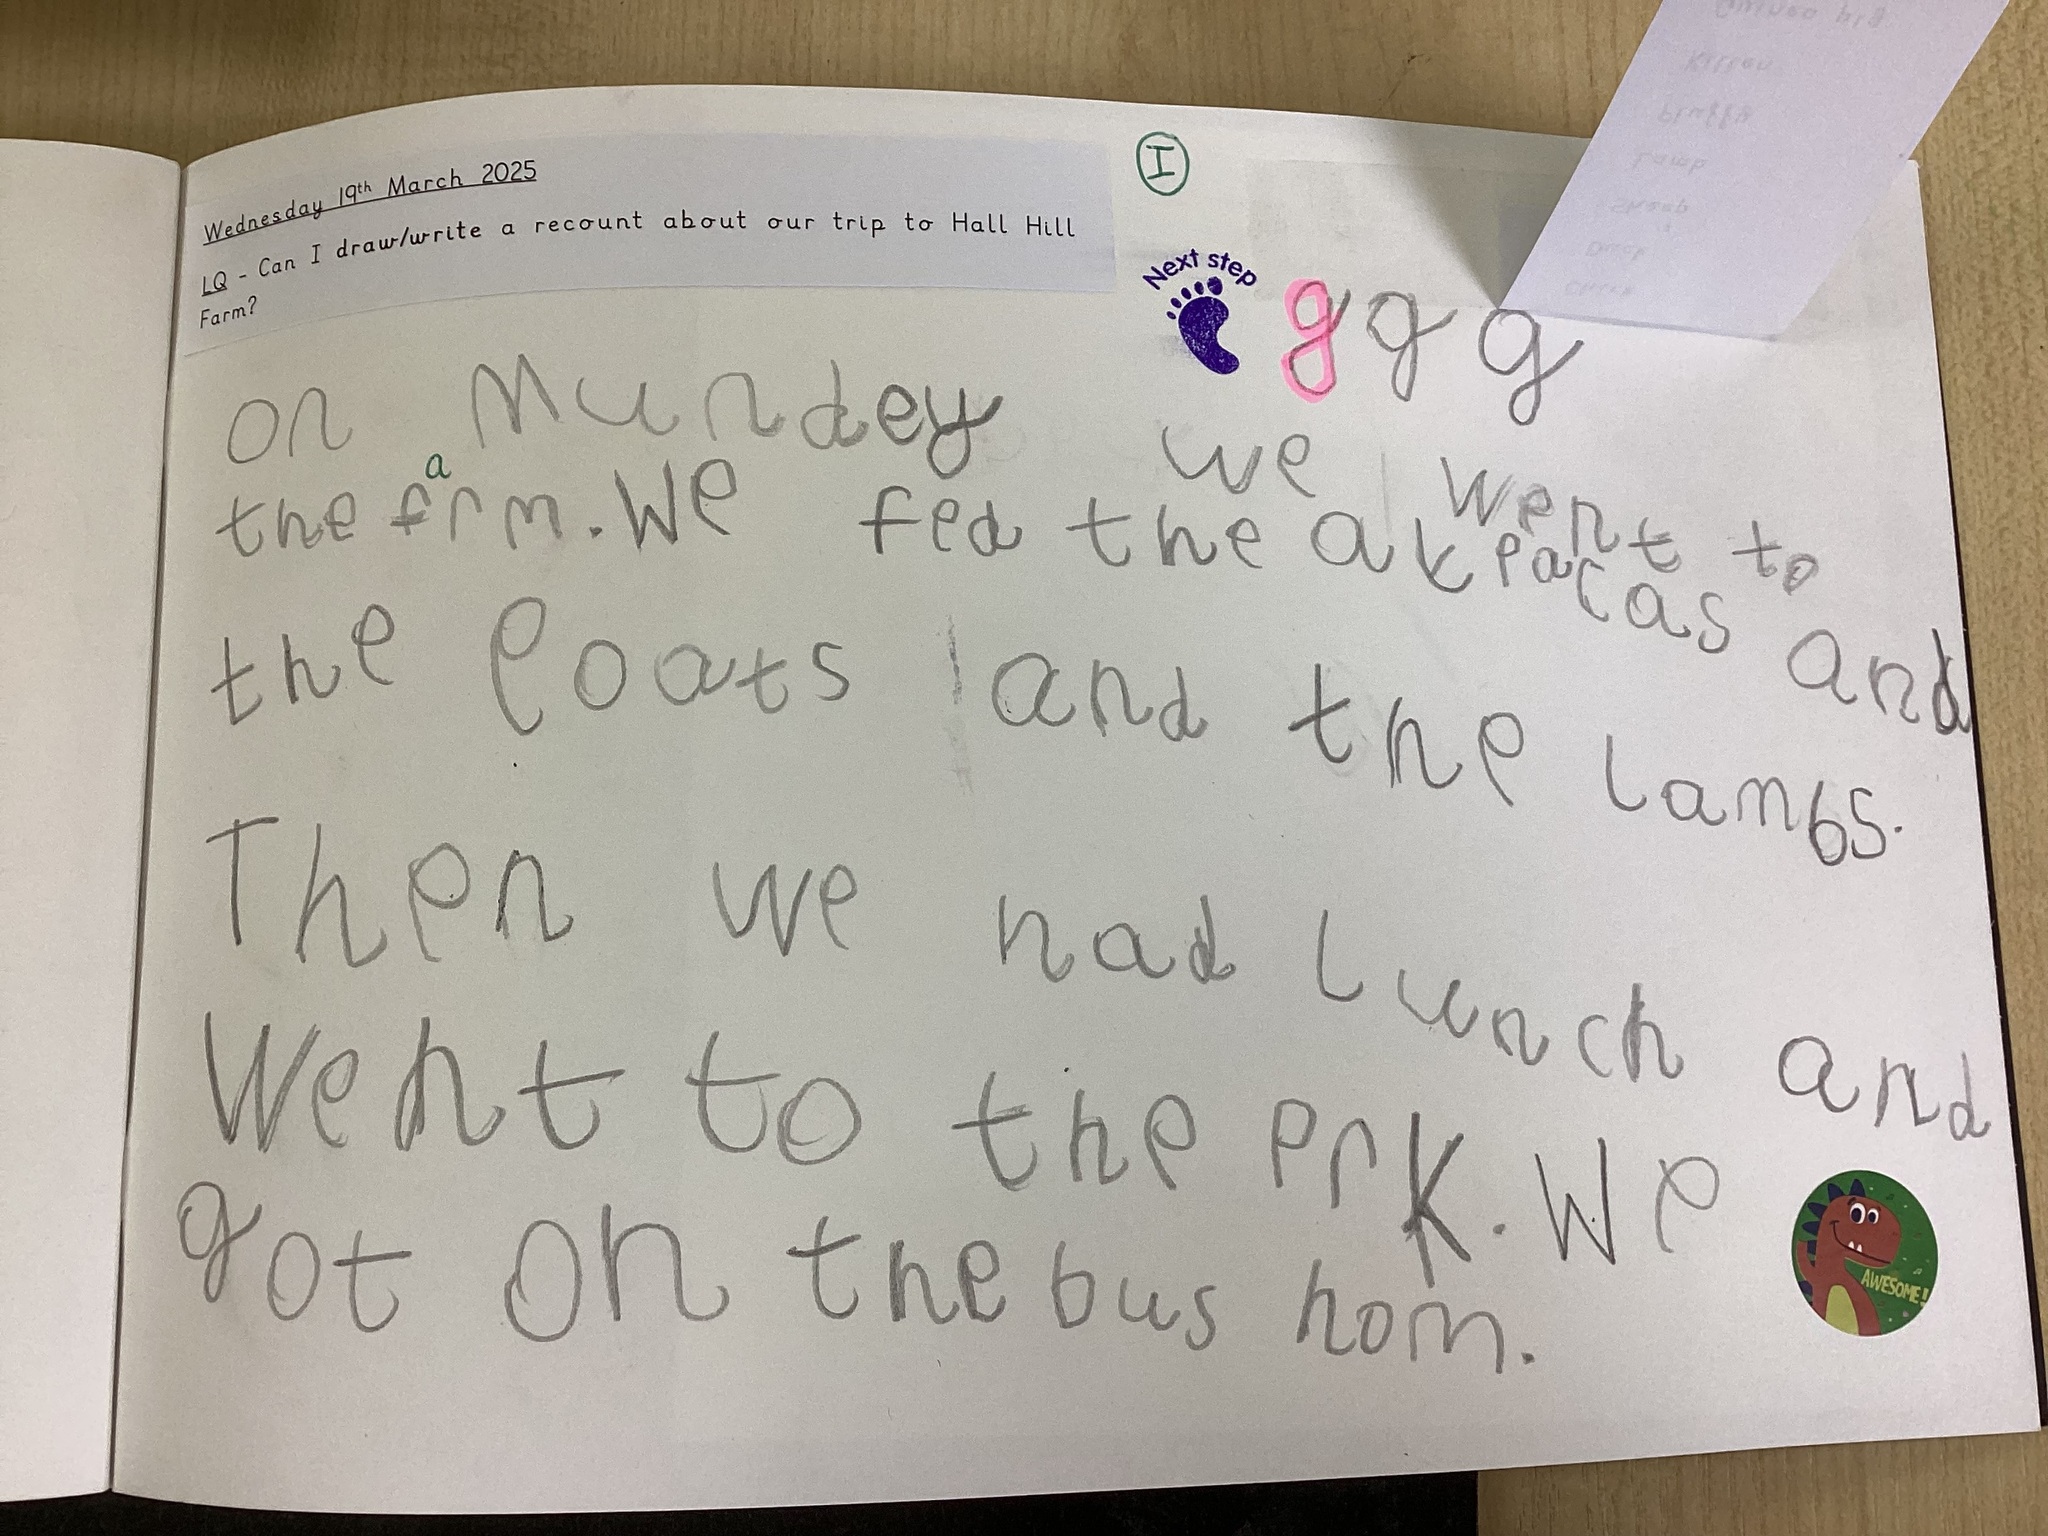 Wednesday 19th March 2025
LQ - Can I draw/write a recount about our trip to Hall Hill
Farm?
I
Next step
g g g
on Mundey we went to
a
the frm. We fed the akpacas and
the goats and the lambs.
Then we had lunch and
Went to the prk. We
got on the bus hom.
AWESOME!
Guinea pig
Kitten
Fluffy
Lamb
Sheep
Duck
Chick